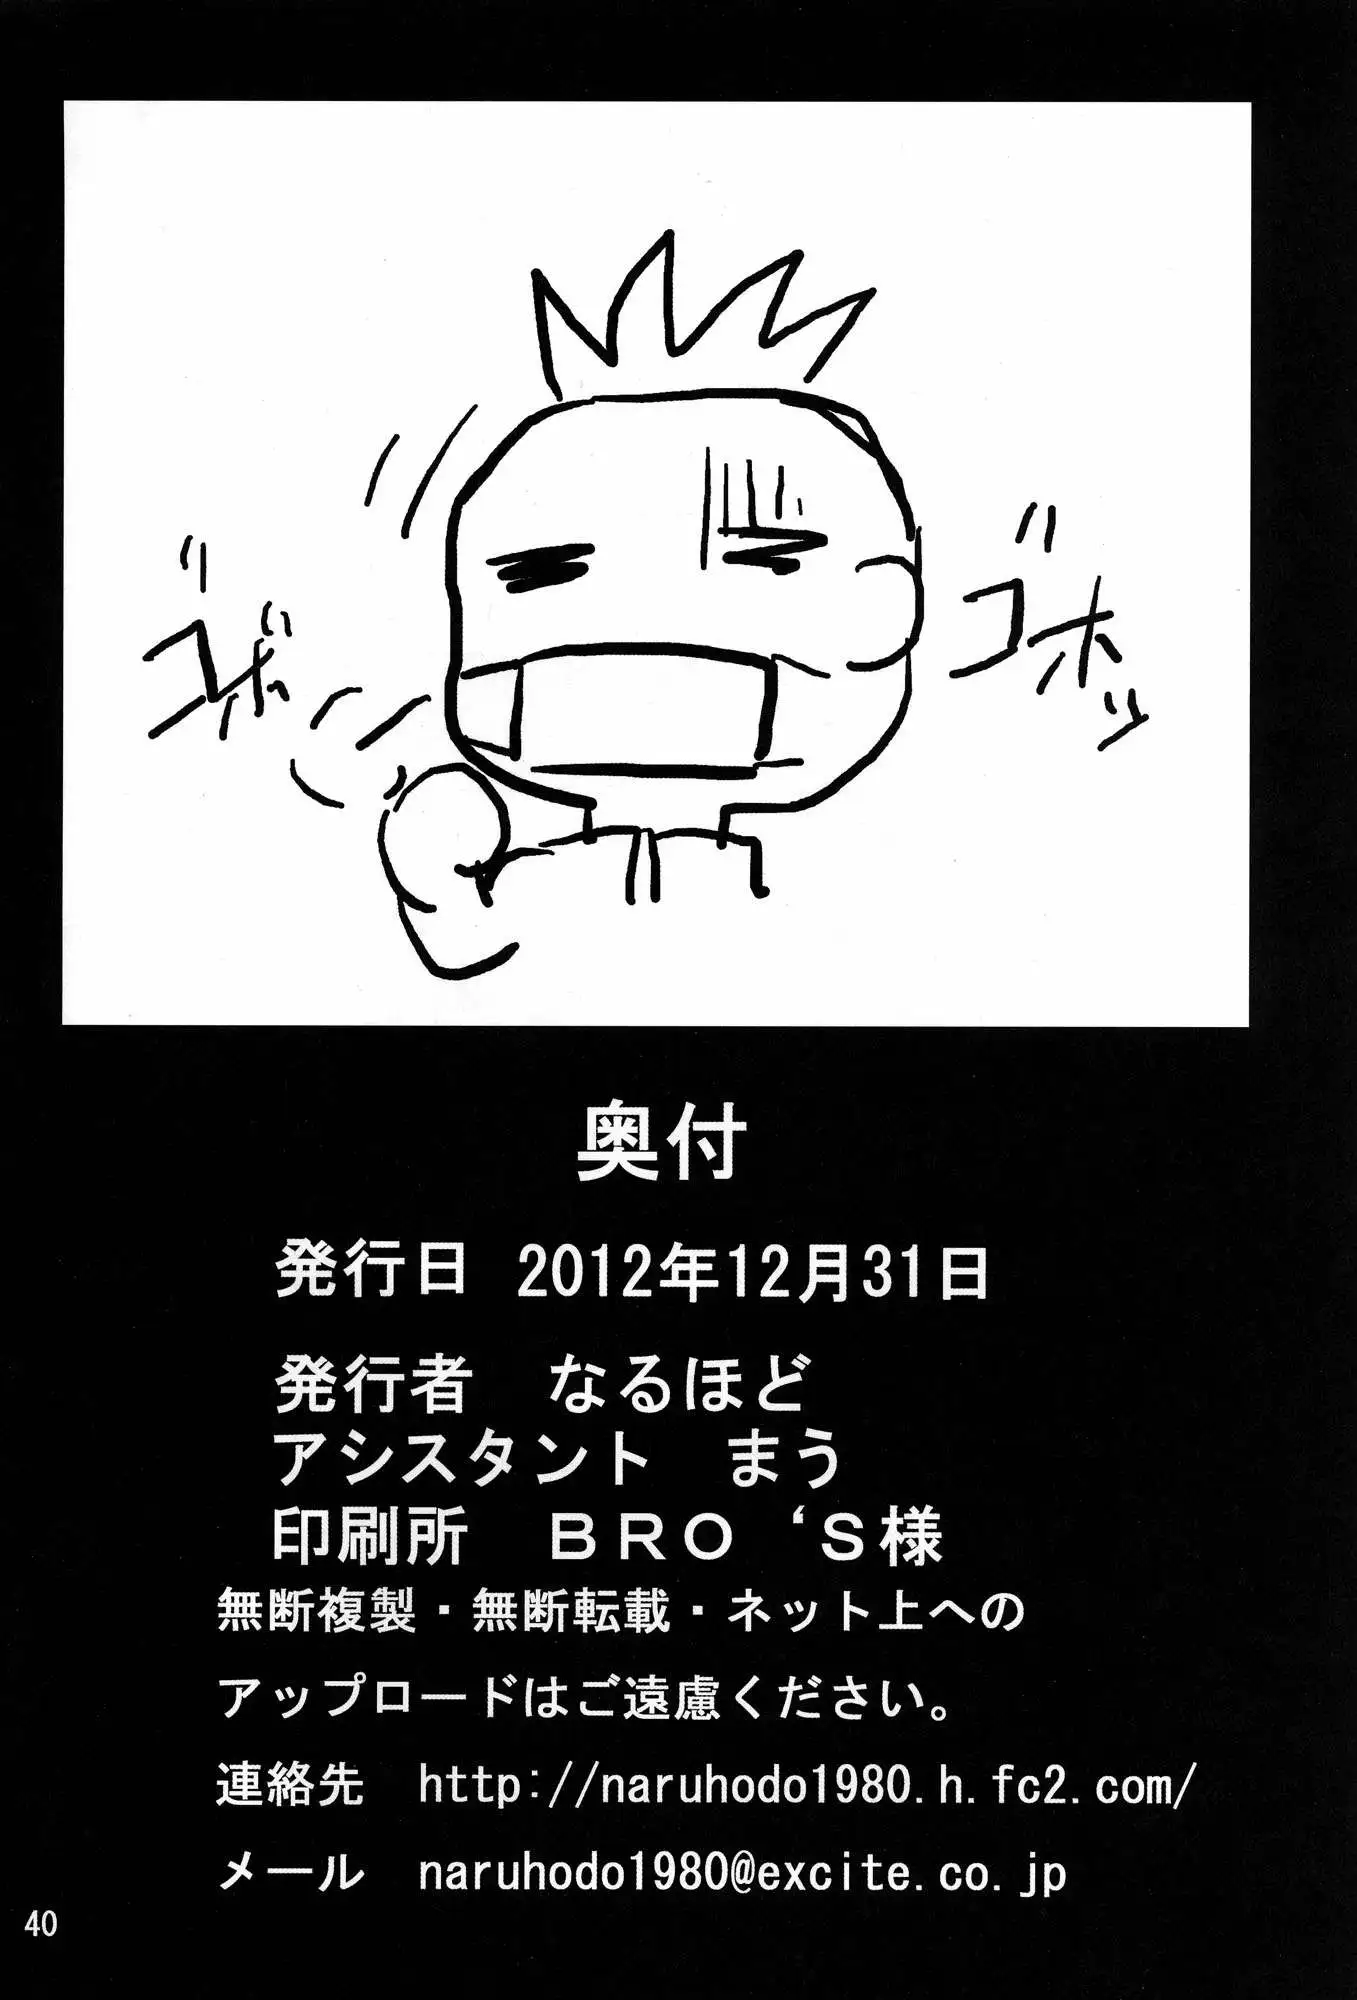 ゴホッ
ゴホッ
奥付
発行日 2012年12月31日
発行者 なるほど
アシスタント まう
印刷所 BRO‘S様
無断複製・無断転載・ネット上への
アップロードはご遠慮ください。
連絡先 http://naruhodo1980.h.fc2.com/
メール naruhodo1980@excite.co.jp
40